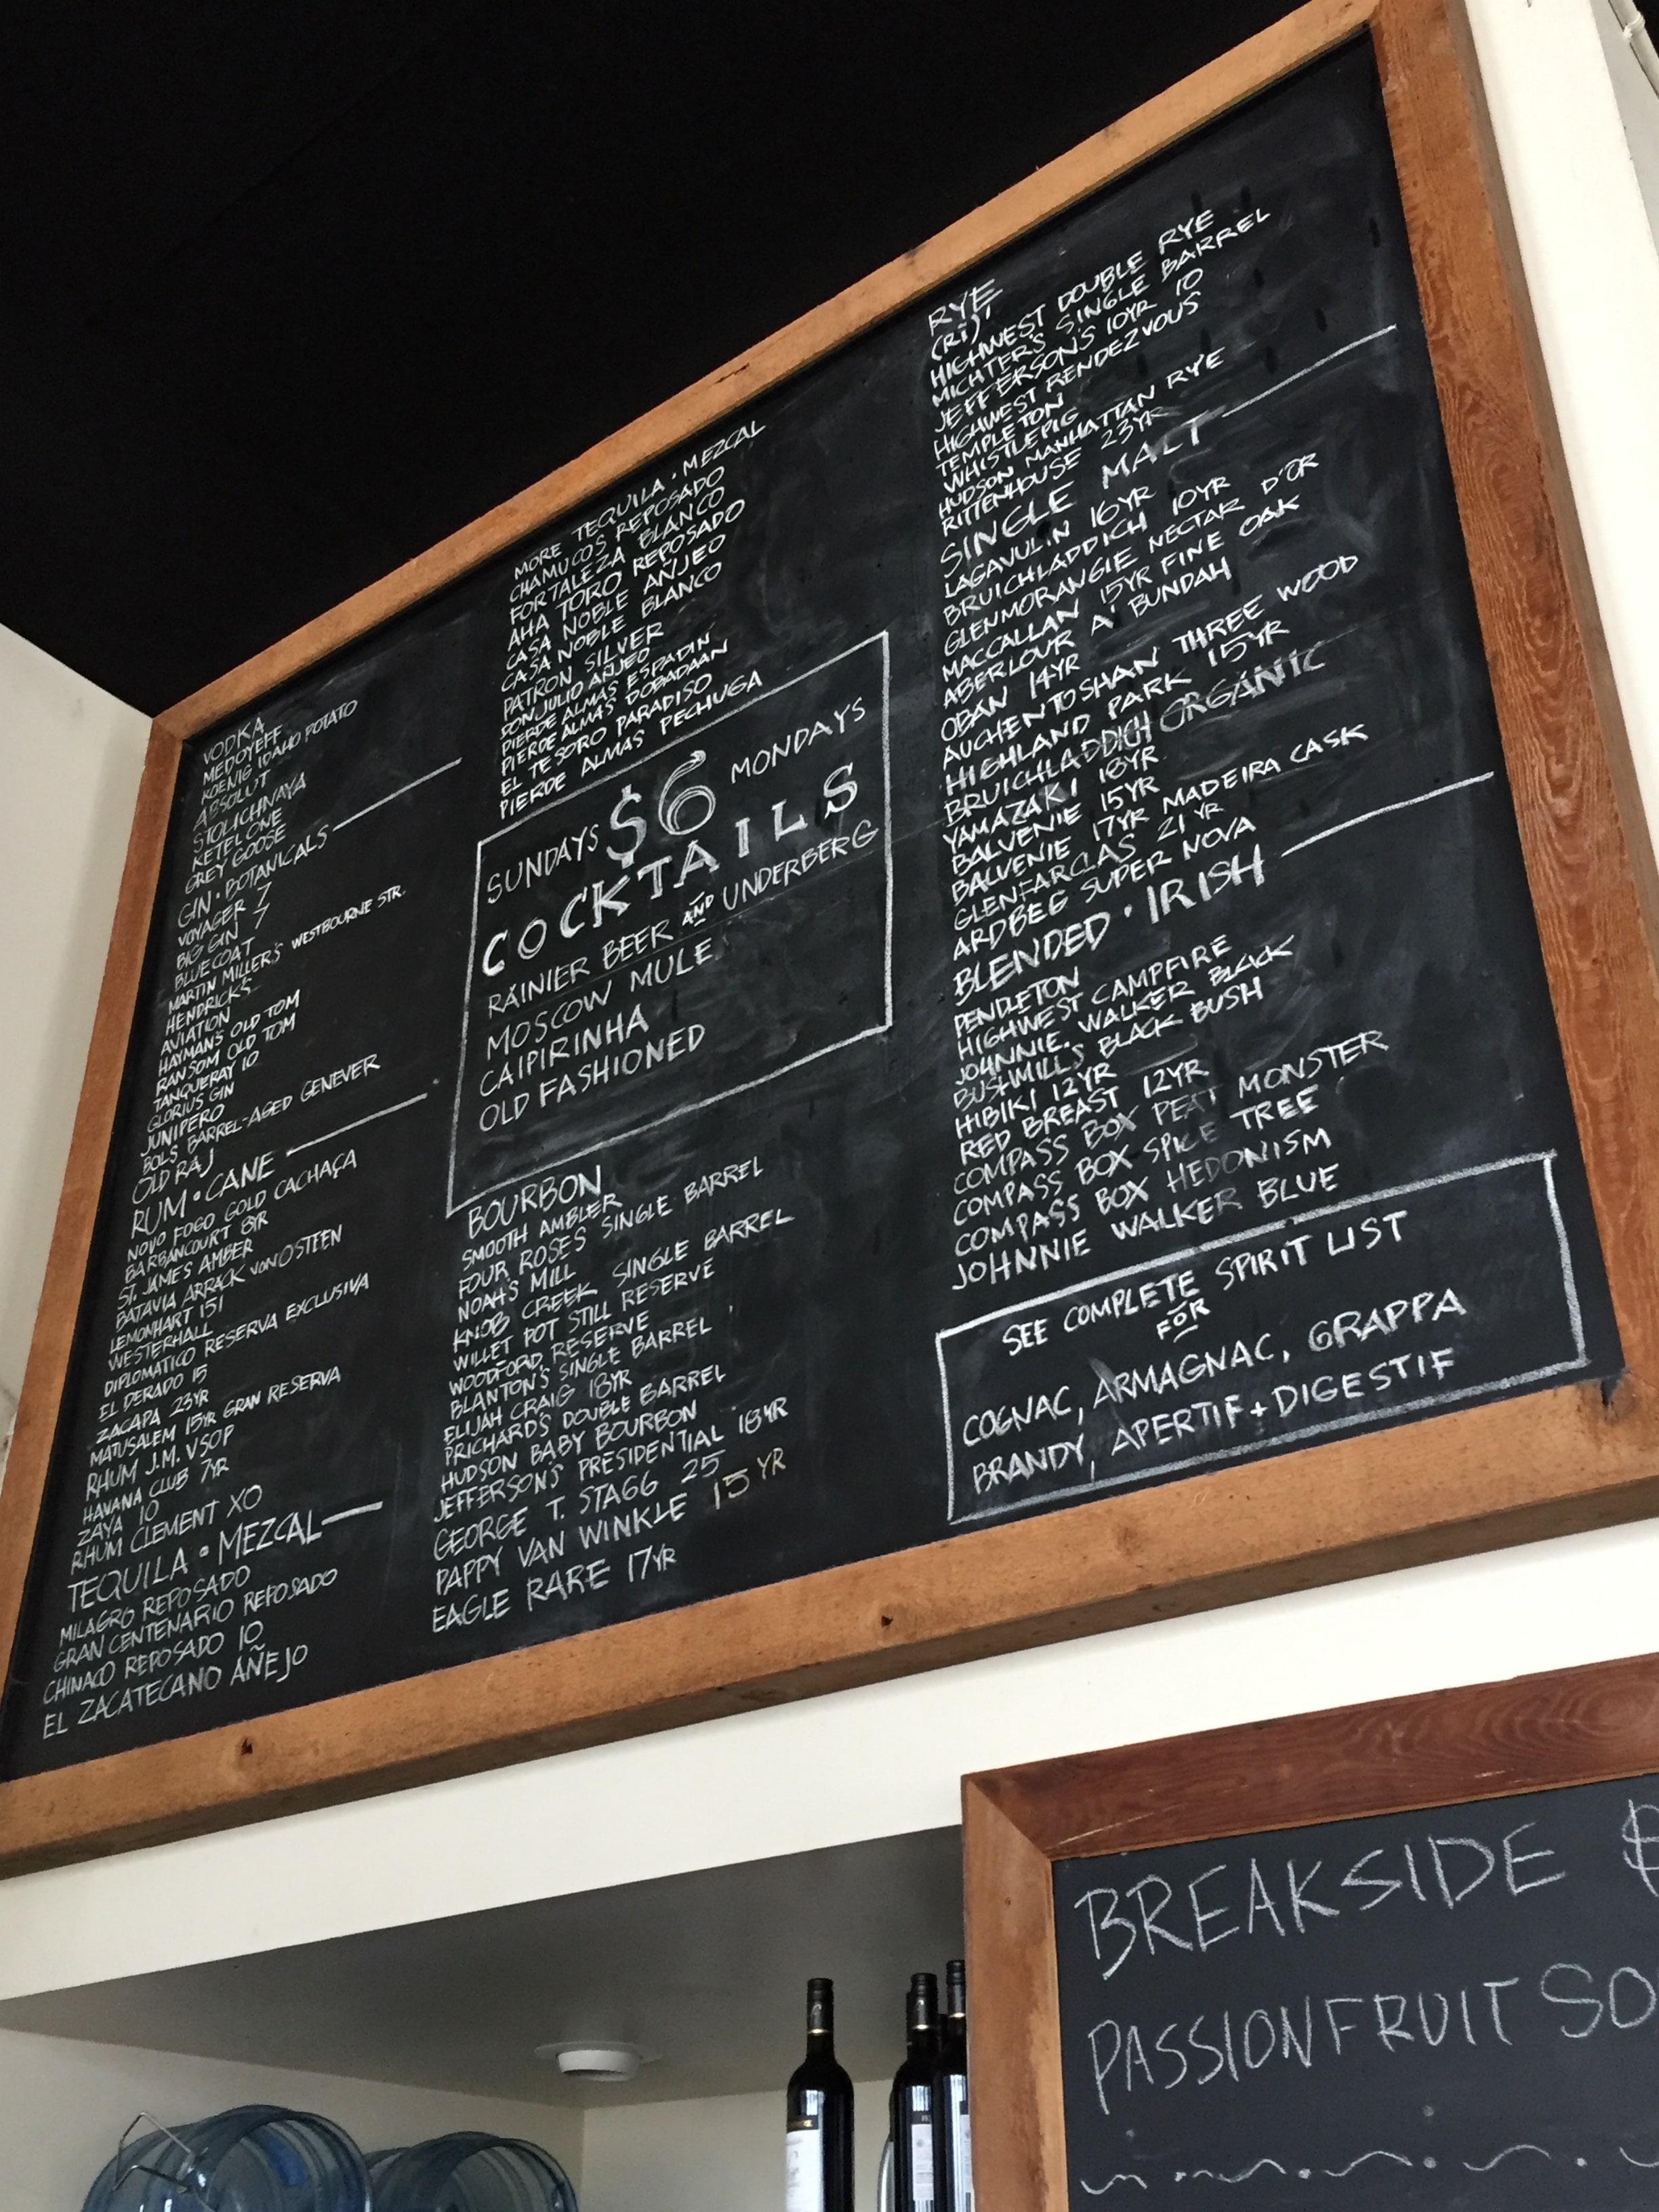 VODKA
MEDOYEFF
KOENIG IDAHO POTATO
ABSOLUT
STOLICHNAYA
KETEL ONE
GREY GOOSE
GIN • BOTANICALS
VOYAGER 7
BIG GIN 7
BLUECOAT
MARTIN MILLER'S WESTBOURNE STR.
HENDRICK'S
AVIATION
HAYMAN'S OLD TOM
RANSOM OLD TOM
TANQUERAY 10
GLORIUS GIN
JUNIPERO
BOLS BARREL-AGED GENEVER
OLD RAJ
RUM • CANE
NOVO FOGO GOLD CACHAÇA
BARBANCOURT 8YR
ST. JAMES AMBER
BATAVIA ARRACK VAN OSTEEN
LEMONHART 151
WESTERHALL
DIPLOMATICO RESERVA EXCLUSIVA
EL DERADO 15
ZACAPA 23YR
MATUSALEM 15YR GRAN RESERVA
RHUM J.M. VSOP
HAVANA CLUB 7YR
ZAYA 10
RHUM CLEMENT XO
TEQUILA • MEZCAL
MILAGRO REPOSADO
GRAN CENTENARIO REPOSADO
CHINACO REPOSADO 10
EL ZACATECANO AÑEJO
MORE TEQUILA • MEZCAL
CHAMUCOS REPOSADO
FORTALEZA BLANCO
AHA TORO REPOSADO
CASA NOBLE AÑJEO
CASA NOBLE BLANCO
PATRON SILVER
DON JULIO AÑJEO
PIERDE ALMAS ESPADIN
PIERDE ALMAS DOBADAAN
EL TESORO PARADISO
PIERDE ALMAS PECHUGA
SUNDAYS $6 MONDAYS
COCKTAILS
RAINIER BEER AND UNDERBERG
MOSCOW MULE
CAIPIRINHA
OLD FASHIONED
BOURBON
SMOOTH AMBLER
FOUR ROSES SINGLE BARREL
NOAH'S MILL
KNOB CREEK SINGLE BARREL
WILLET POT STILL RESERVE
WOODFORD RESERVE
BLANTON'S SINGLE BARREL
ELIJAH CRAIG 18YR
PRICHARD'S DOUBLE BARREL
HUDSON BABY BOURBON
JEFFERSON'S PRESIDENTIAL 18YR
GEORGE T. STAGG 25
PAPPY VAN WINKLE 15YR
EAGLE RARE 17YR
RYE
(RI)'
HIGHWEST DOUBLE RYE
MICHTER'S SINGLE BARREL
JEFFERSON'S 10YR 10
HIGHWEST RENDEZVOUS
TEMPLETON
WHISTLEPIG
HUDSON MANHATTAN RYE
RITTENHOUSE 23YR
SINGLE MALT
LAGAVULIN 16YR
BRUICHLADDICH 10YR
GLENMORANGIE NECTAR D'OR
MACCALLAN 15YR FINE OAK
ABERLOUR A' BUNDAH
OBAN 14YR
AUCHENTOSHAN THREE WOOD
HIGHLAND PARK 15YR
BRUICHLADDICH ORGANIC
YAMAZAKI 18YR
BALVENIE 15YR
BALVENIE 17YR MADEIRA CASK
GLENFARCLAS 21YR
ARDBEG SUPER NOVA
BLENDED • IRISH
PENDLETON
HIGHWEST CAMPFIRE
JOHNNIE WALKER BLACK
BUSHMILLS BLACK BUSH
HIBIKI 12YR
RED BREAST 12YR
COMPASS BOX PEAT MONSTER
COMPASS BOX SPICE TREE
COMPASS BOX HEDONISM
JOHNNIE WALKER BLUE
SEE COMPLETE SPIRIT LIST
FOR
COGNAC, ARMAGNAC, GRAPPA
BRANDY, APERTIF + DIGESTIF
BREAKSIDE
PASSIONFRUIT SO